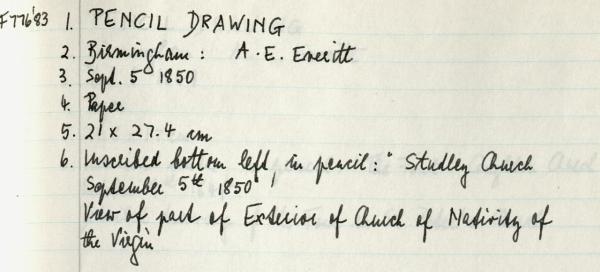 F776'83 1. PENCIL DRAWING
2. Birmingham: A.E. Everitt
3. Sept. 5 1850
4. Paper
5. 21 x 27.4 cm
6. Inscribed bottom left, in pencil: "Studley Church
September 5th 1850'
View of part of Exterior of Church of Nativity of
the Virgin